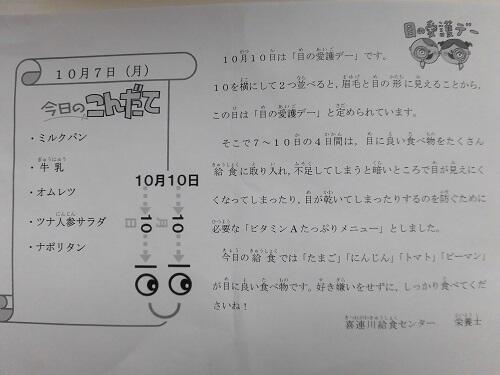 10月7日（月）
今日のこんだて
・ミルクパン
・牛乳
・オムレツ
・ツナ人参サラダ
・ナポリタン
10月10日
10 10
月
日
目の愛護デー
10月10日は「目の愛護デー」です。
10を横にして2つ並べると、眉毛と目の形に見えることから、
この日は「目の愛護デー」と定められています。
そこで7～10日の4日間は、目に良い食べ物をたくさん
給食に取り入れ,不足してしまうと暗いところで目が見えにく
くなってしまったり,目が乾いてしまったりするのを防ぐために
必要な「ビタミンAたっぷりメニュー」としました。
今日の給食では「たまご」「にんじん」「トマト」「ピーマン」
が目に良い食べ物です。好き嫌いをせずに、しっかり食べてくだ
さいね！
喜連川給食センター 栄養士